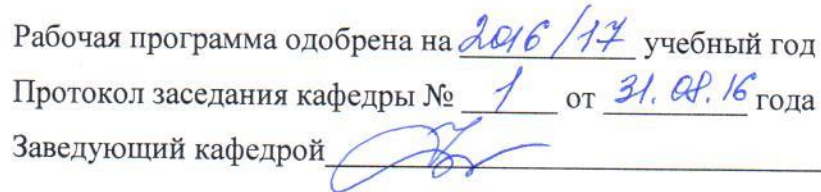 Рабочая программа одобрена на 2016/17 учебный год
Протокол заседания кафедры № 1 от 31.08.16 года
Заведующий кафедрой